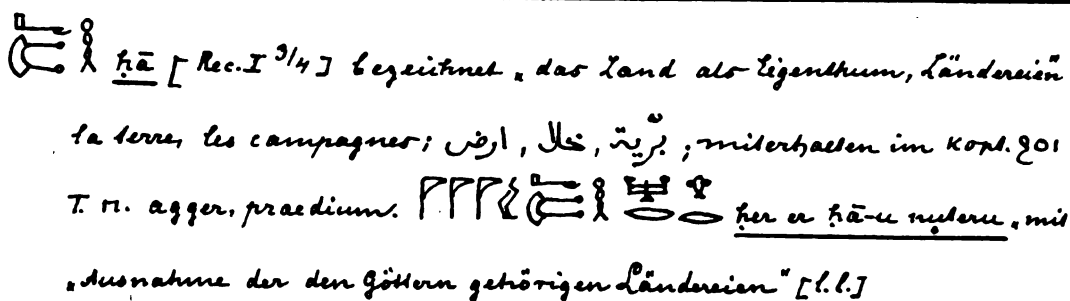 ḥā [Rec. I 3/4] bezeichnet „das Land als Eigenthum, Ländereien"
la terre, les campagnes; ارض, خلال, برّية; miterhalten im kopt. ϩοι
T. M. agger, praedium. ḥer er ḥā-u nuteru „mit
„Ausnahme der den Göttern gehörigen Ländereien" [l.l.]